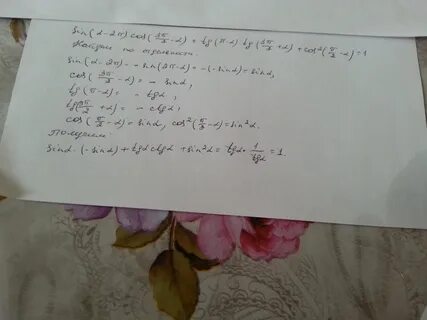 sin(α-2π) cos(3π/2-α) + tg(π-α) tg(3π/2+α) + cos²(π/2-α)=1
по отдельности.
sin(α-2π)=-sin(2π-α)=-(-sinα)=sinα,
cos(3π/2-α)=-sinα,
tg(π-α)=-tgα,
tg(3π/2+α)=-ctgα,
cos(π/2-α)=sinα, cos²(π/2-α)=sin²α.
Получим:
sinα·(-sinα)+tgα ctgα+sin²α=tgα·1/tgα=1.